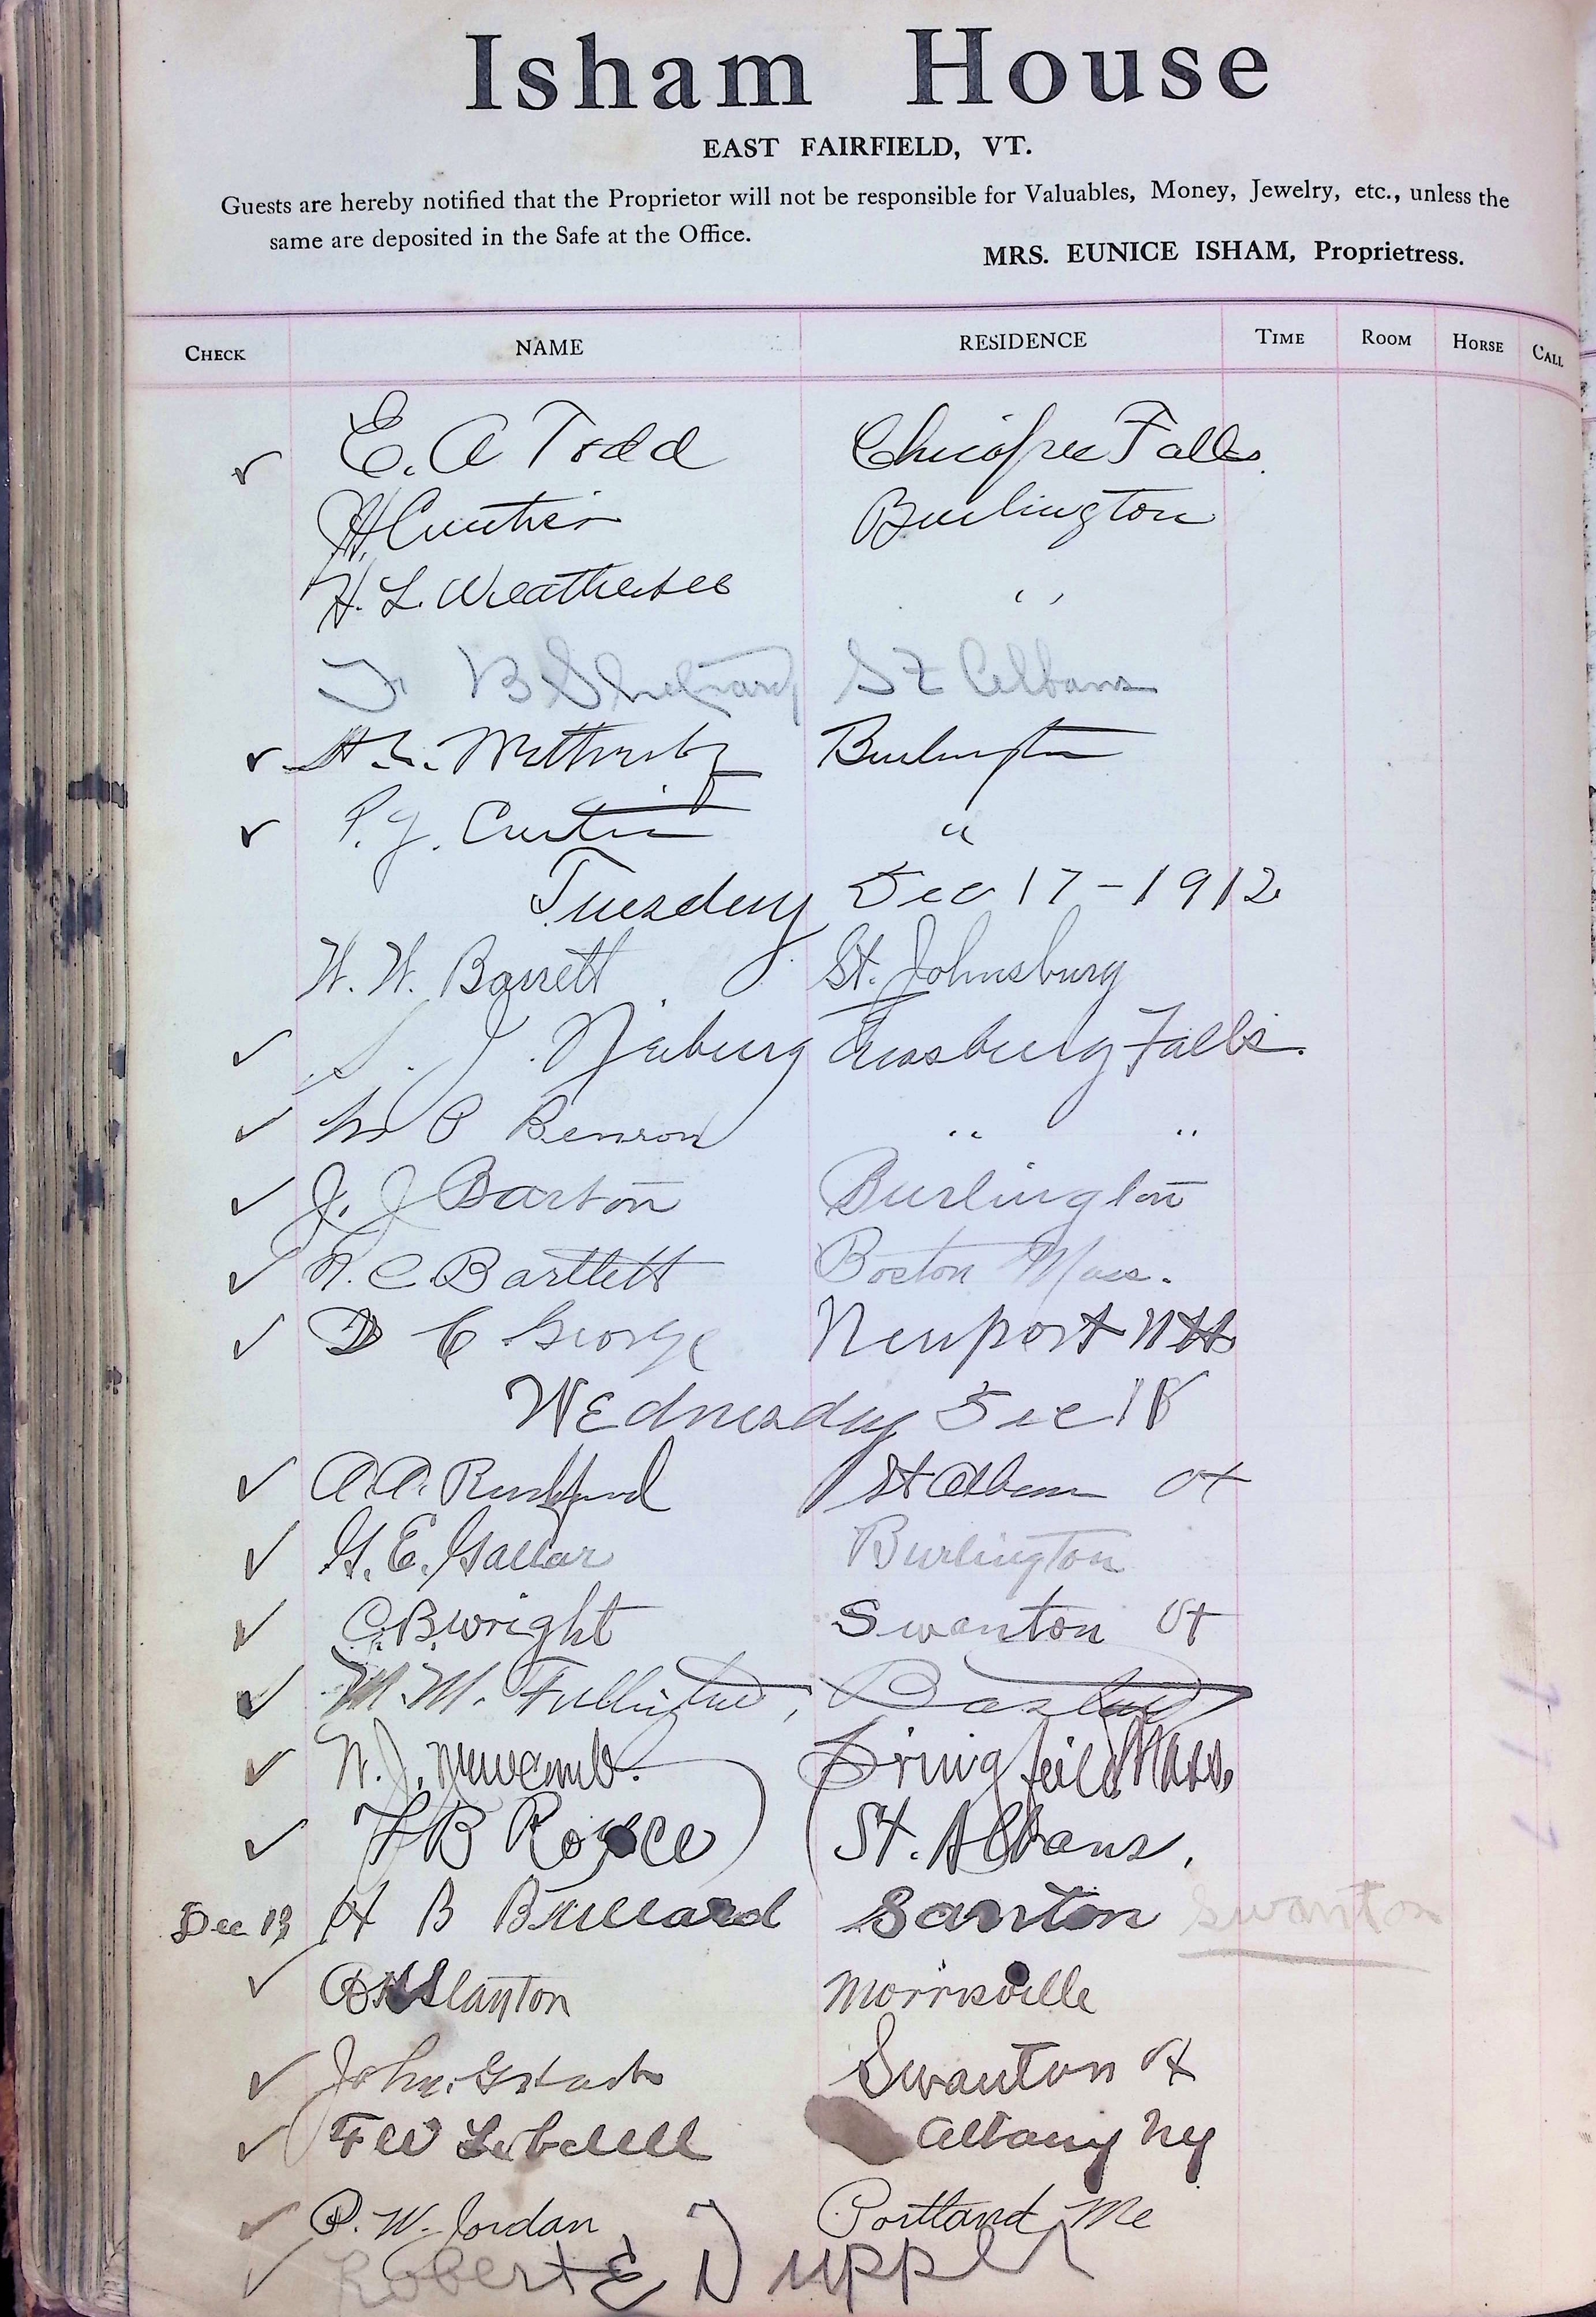 Isham House
EAST FAIRFIELD, VT.
Guests are hereby notified that the Proprietor will not be responsible for Valuables, Money, Jewelry, etc., unless the
same are deposited in the Safe at the Office.
MRS. EUNICE ISHAM, Proprietress.
CHECK NAME RESIDENCE TIME ROOM HORSE CALL
✓ E. A Todd Chicopee Falls
Burlington
H. L. Weatherbee "
B Shepard St Albans
✓ Burlington
✓ P. J. Curtin "
Tuesday Dec 17-1912
W. W. Barrett St. Johnsbury
✓ Enosburg Falls.
✓ Benson " "
✓ J. J Barton Burlington
✓ C Bartlett Boston Mass.
✓ D C George Newport NH
Wednesday Dec 18
✓ A. A. St Albans Vt
✓ G. E. Burlington
✓ C. B. Wright Swanton Vt
✓ M. M. Boston
✓ W. J. Newcomb. Springfield Mass.
✓ F B Royce St. Albans.
Dec 19 H B Bullard Santon Swanton
✓ Slayton Morrisville
✓ John Swanton Vt
✓ F W Lobdell Albany Ny
✓ P. W. Jordan Portland Me
✓ Robert E Dupper